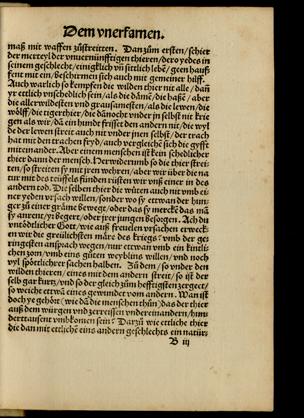 Dem vnerfarnen.
maß mit waffen zůstreitten. Dan zům ersten/ schier
der merteyl der vnuernünfftigen thieren/ dero yedes in
seinem geschlecht/ einigklich vñ sittlich lebt/ geen hauf
fent mit ein/ beschirmen sich auch mit gemeiner hilff.
Auch warlich so kempfen die wilden thier nit alle/ dañ
yr ettlich vnschedlich sein/ als die
die allerwildesten vnd grausamesten/ als die lewen/ die
wölff/ die tigerthier/ die dánocht vnder jn selbst nit krie
gen als wir/ dã ein hund frisset den andern nit/ die wyl
de der lewen streit auch nit vnder jnen selbst. der trach
hat nit den trachen fryd/ auch vergleicht sich die gyfft
miteinander. Aber einem menschen ist kein schedlicher
thier dann der mensch. Herwiderumb so die thier strei-
ten/ so streiten sy mit jren wehren/ aber wir über die na
tur mit des teüffels fünden rüsten wir vnß einer in des
andern tod. Die selben thier die wüten auch nit vmb ei-
ner yeden vrsach willen/ sonder wo sy ettwan der hun-
ger zů einer grãme bewegt/ oder das sy mercke das mã
sy anrent/ yr begert/ oder jrer jungen besorgen. Ach du
vntödtlicher Gott/ wie auß freuelen vrsachen erweck-
en wir die greülichsten märe des kriegs: vmb der ge-
ringesten ansprach wegen/ nur ettwan vmb ein kintli-
chen zorn/ vmb eins gůten weyblins willen/ vnd noch
vyl spöttlicher sachen halben. Zů dem/ so vnder den
wilden thieren/ eines mit dem andern streit/ so ist der
selb gar kurtz/ vnd so der gleich zům hefftigsten zergeet/
so weicht ettwã eines gewunder vom andern. Wan ist
doch ye gehört/ wie dã die menschen thůn/ das der thier
auß dem würgen vnd zerreissen vndereinandern/ hun-
derttausent vmbkomen sein: Darzů wie ettliche thier
die dan mit ettliche eins andern geschlechts ein natür-
B iij